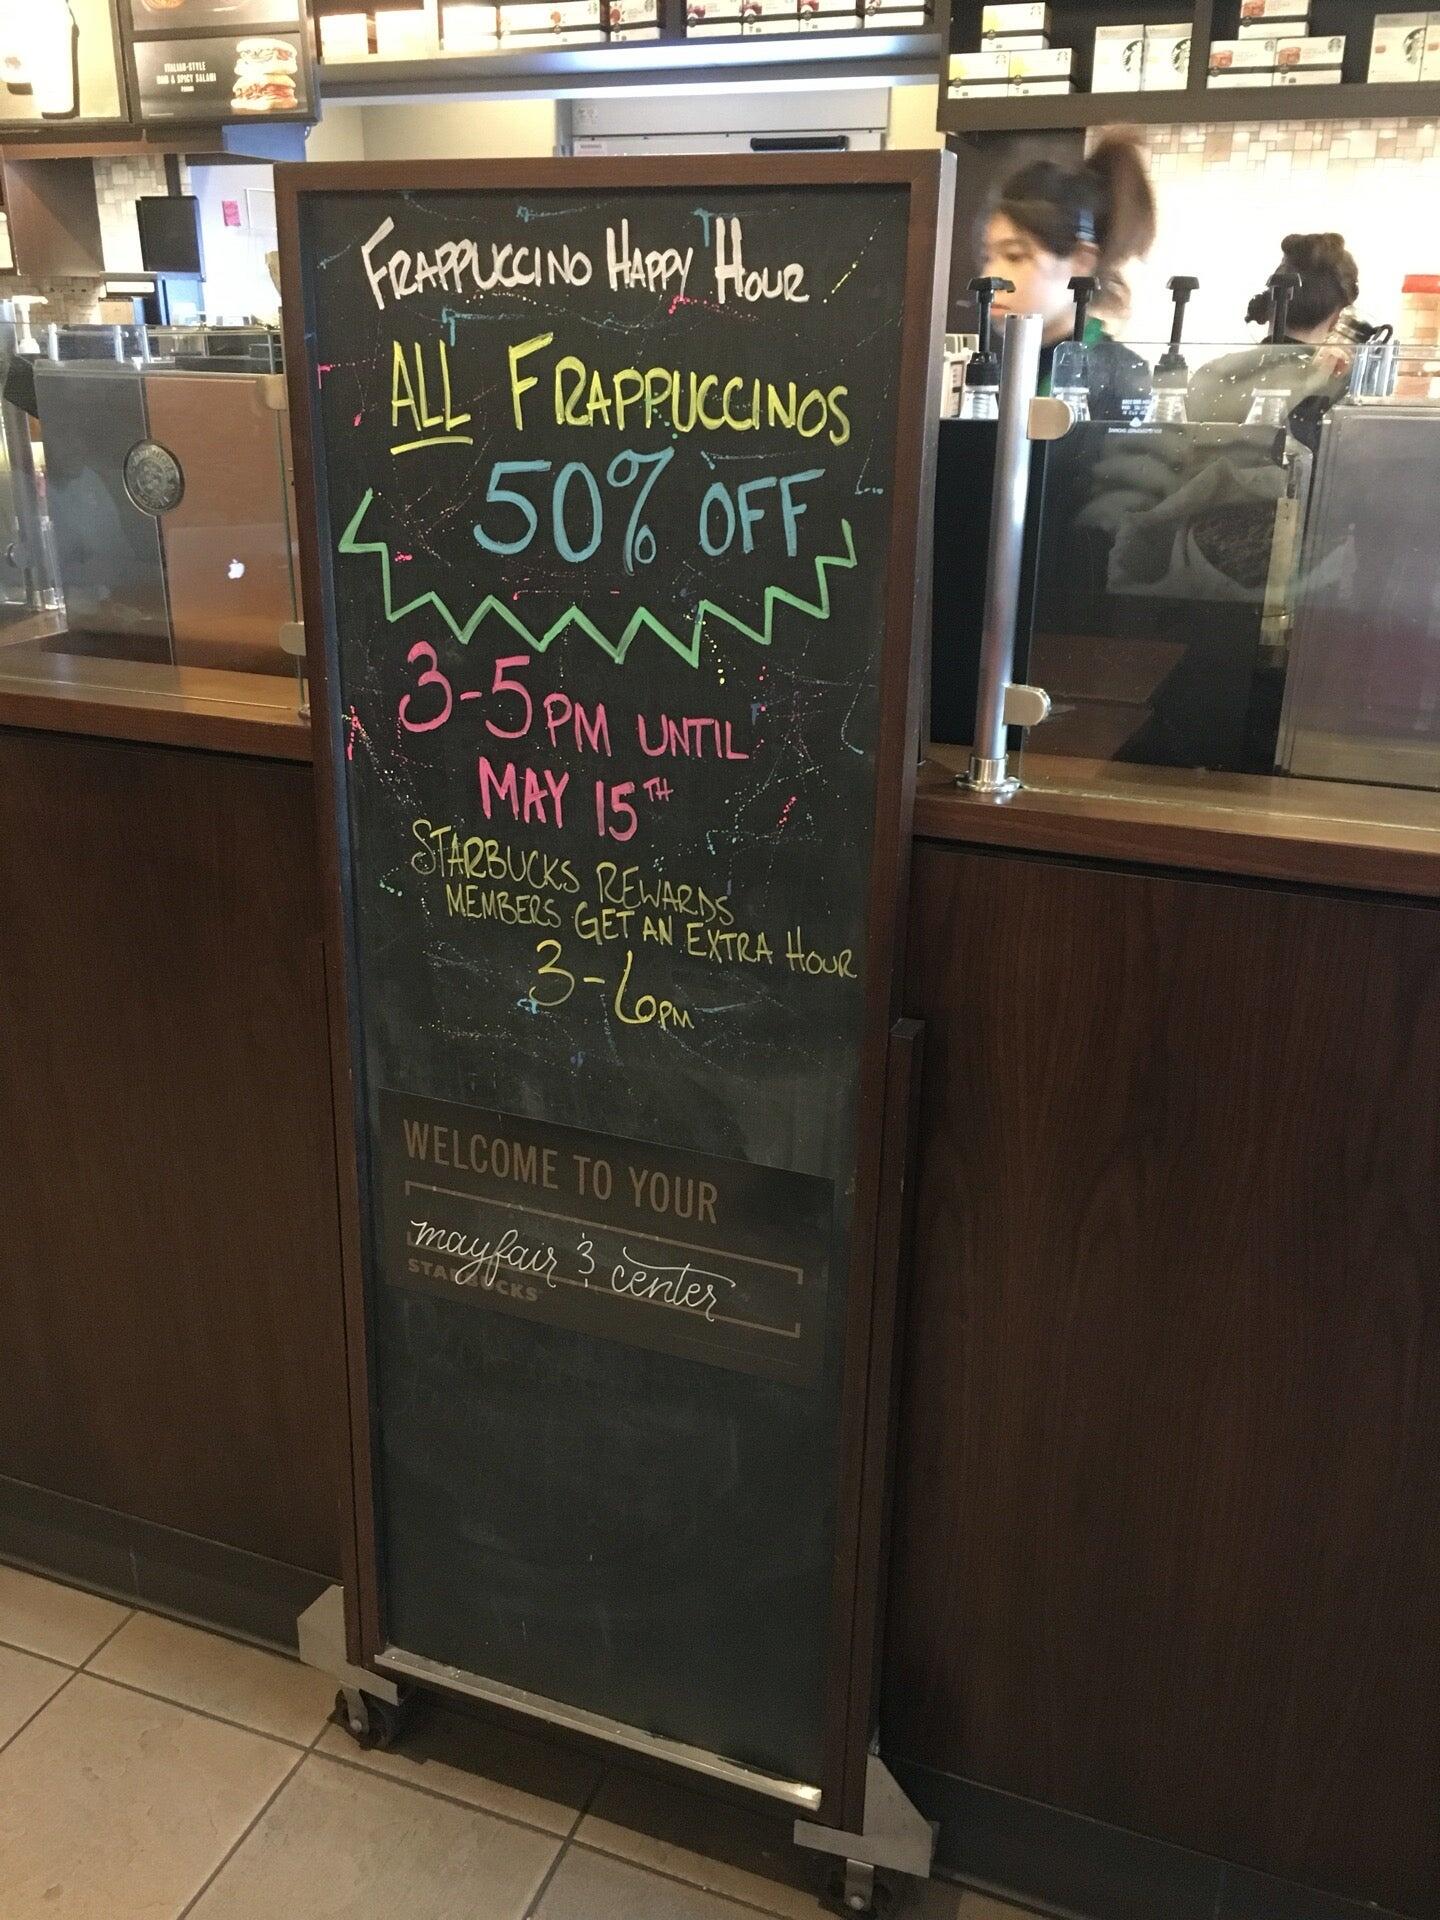 ITALIAN-STYLE
HAM & SPICY SALAMI
FRAPPUCCINO HAPPY HOUR
ALL FRAPPUCCINOS
50% OFF
3-5PM UNTIL
MAY 15TH
STARBUCKS REWARDS
MEMBERS GET AN EXTRA HOUR
3-6PM
WELCOME TO YOUR
mayfair & center
STARBUCKS